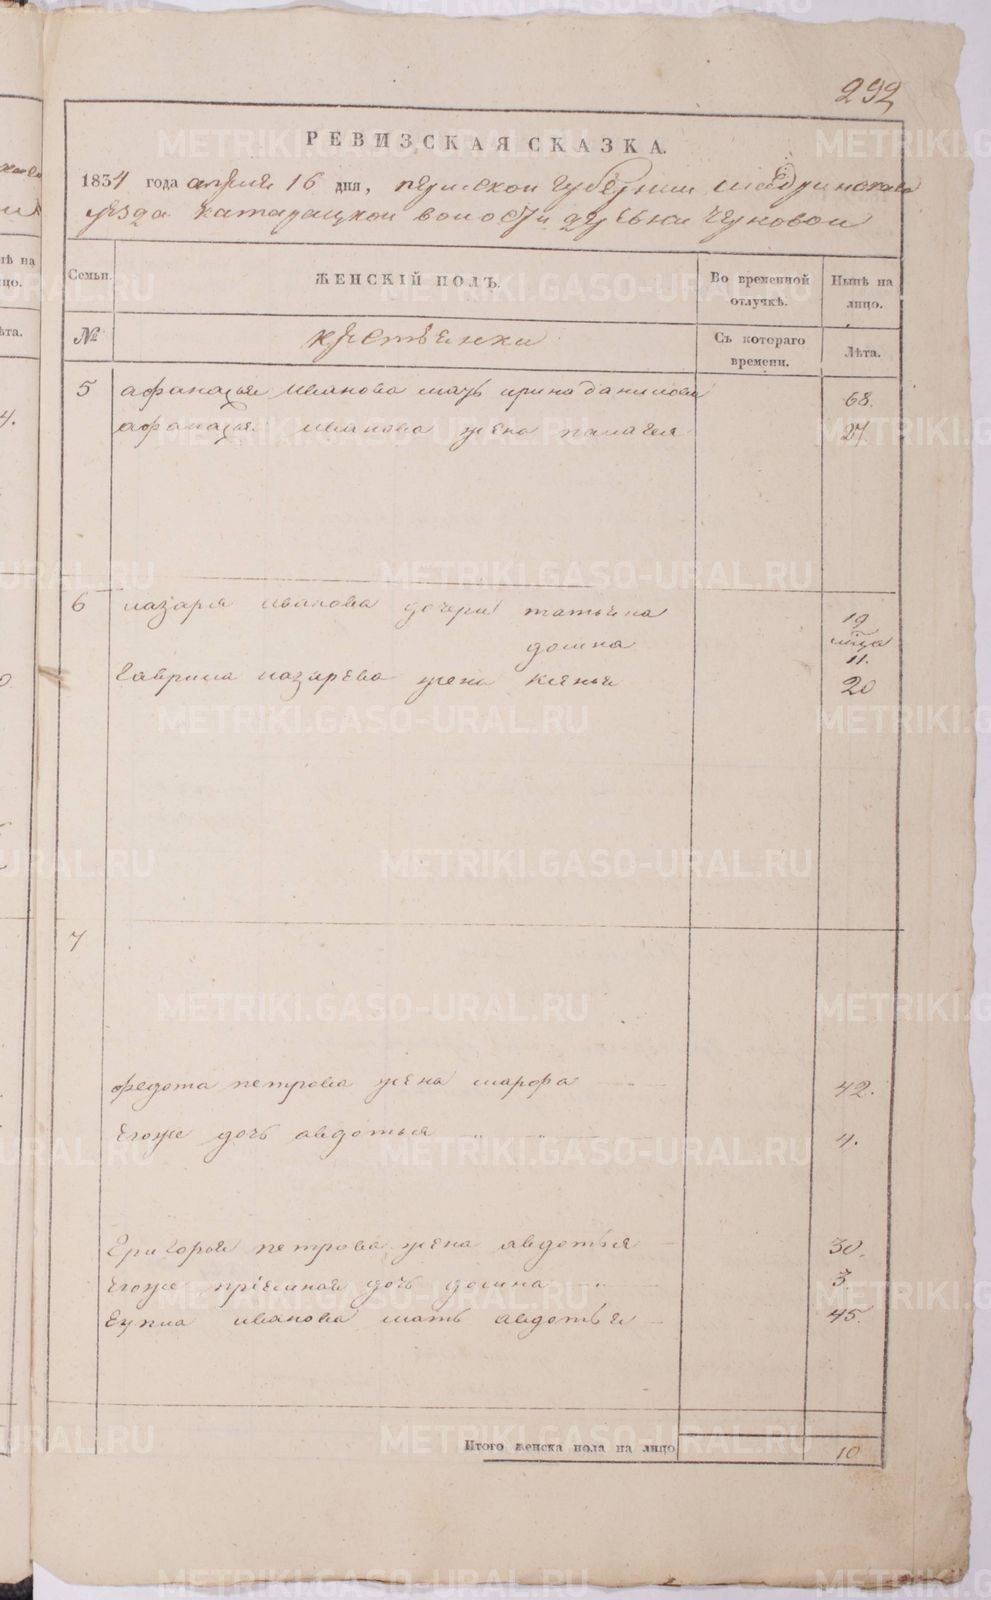 292
РЕВИЗСКАЯ СКАЗКА.
1834 года апреля 16 дня, пермской губернии шадринскаго
уезда катарацкой волости деревни черновой
Семьи.
ЖЕНСКІЙ ПОЛЪ.
Во временной отлучкѣ.
Нынѣ на лицо.
№
крестьянки
Съ котораго времени.
Лѣта.
5 афанасья иванова мать ирина данилова 68.
афанасья иванова жена палагея 27.
6 лазаря иванова дочери татьяна 19
домна мѣсяца 11.
гаврила лазарева жена ксенья 20
7
федота петрова жена марфа 42.
Егоже дочь авдотья 4.
григорья петрова жена авдотья 30.
Егоже пріемная дочь домна 3.
иванова мать авдотья 45.
Итого женска пола на лицо 10
METRIKI.GASO-URAL.RU